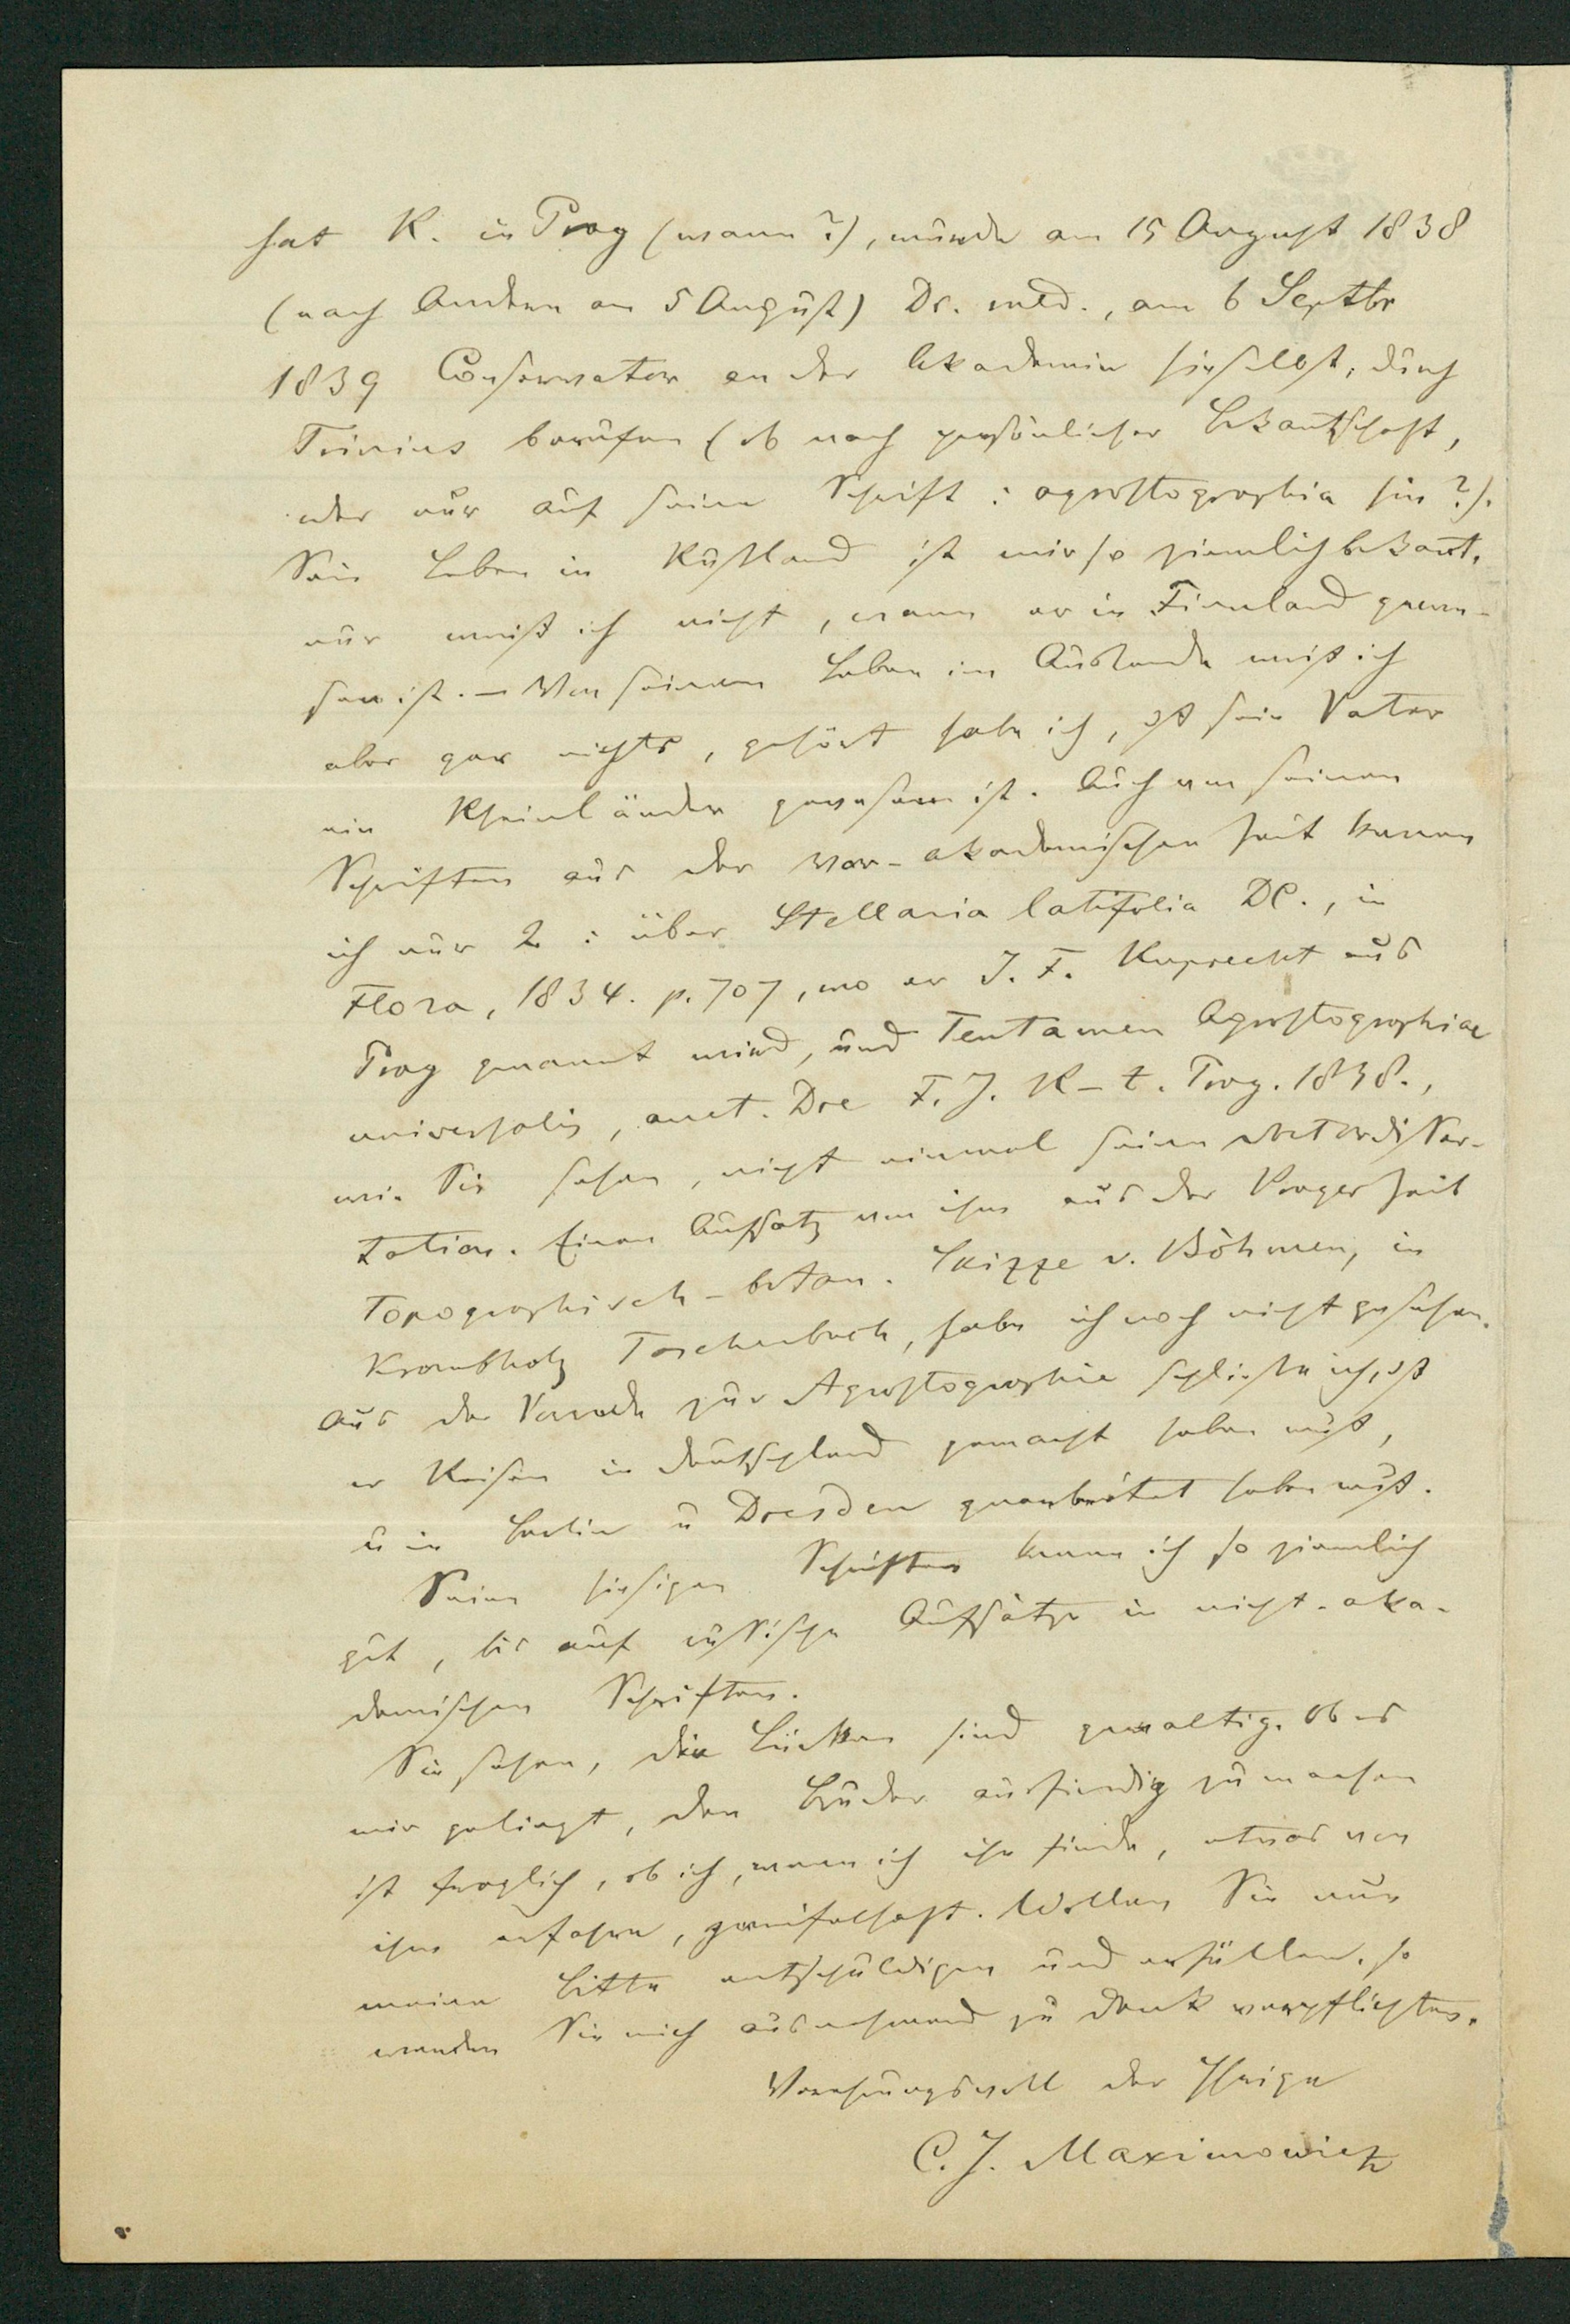 hat R. in Prag (wann?), wurde am 15 August 1838
(nach Andern am 5 August) Dr. med., am 6 Septbr
1839 Conservator an der Akademie hieselbst, durch
Trinius berufen (ob nach persönlicher Bekantschaft,
oder nur auf seine Schrift: agrostographia hin?).
Sein Leben in Rußland ist mir so ziemlich bekant,
nur weiß ich nicht, wann er in Finnland gewe-
sen ist. – Von seinem Leben im Auslande weiß ich
aber gar nichts, gehört habe ich, daß sein Vater
ein Rheinländer gewesen ist. Auch von seinen
Schriften aus der vor-akademischen Zeit kenne
ich nur 2: über Stellaria latifolia DC., in
Flora, 1834. p. 707, wo er J. F. Ruprecht aus
Prag genannt wird, und Tentamen Agrostographiae
universalis, auct. Dre F. J. R–t. Prag. 1838.,
wie Sie sehen, nicht einmal seine Doctordisser-
tation. Einen Aufsatz von ihm aus der Prager Zeit
Topographisch-botan. Skizze v. Böhmen, in
Krombholz Taschenbuch, habe ich noch nicht gesehen.
Aus der Vorrede zur Agrostographie schließe ich, daß
er Reisen in Deutschland gemacht haben muß,
u in Berlin u Dresden gearbeitet haben muß.
Seine hiesigen Schriften kenne ich so ziemlich
gut, bis auf russische Aufsätze in nicht-aka-
demischen Schriften.
Sie sehen, die Lücken sind gewaltig. Ob es
mir gelingt, den Bruder ausfindig zu machen
ist fraglich, ob ich, wenn ich ihn finde, etwas von
ihm erfahre, zweifelhaft. Wollen Sie nun
meine Bitte entschuldigen und erfüllen, so
werden Sie mich ausnehmend zu Dank verpflichten.
Verehrungsvoll der Ihrige
C. J. Maximowicz